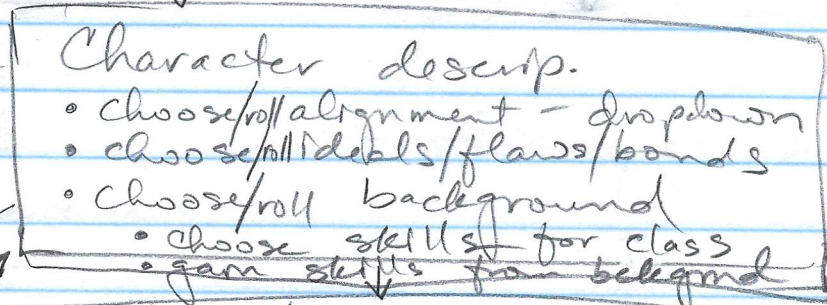 Character descrip.
• choose/roll alignment - dropdown
• choose/roll ideals/flaws/bonds
• choose/roll background
• choose skills for class
• gain skills from bckgrnd